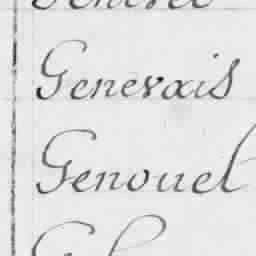 Genevais
Genouel